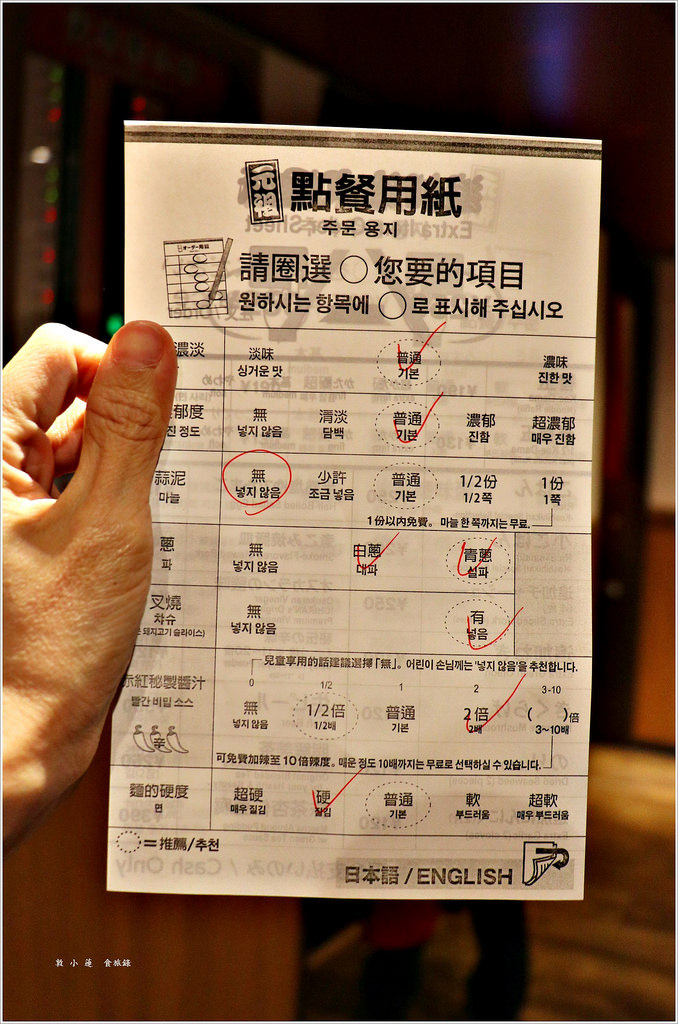 元祖 點餐用紙
주문 용지
請圈選 ○ 您要的項目
원하시는 항목에 ○ 로 표시해 주십시오
濃淡 淡味 普通 濃味
싱거운 맛 기본 진한 맛
郁度 無 清淡 普通 濃郁 超濃郁
진 정도 넣지 않음 담백 기본 진함 매우 진함
蒜泥 無 少許 普通 1/2份 1份
마늘 넣지 않음 조금 넣음 기본 1/2쪽 1쪽
1份以內免費。 마늘 한 쪽까지는 무료.
蔥 無 白蔥 青蔥
파 넣지 않음 대파 실파
叉燒 無 有
챠슈 넣지 않음 넣음
돼지고기 슬라이스)
兒童享用的話建議選擇「無」。어린이 손님께는 '넣지 않음'을 추천합니다.
0 1/2 1 2 3-10
赤紅秘製醬汁 無 1/2倍 普通 2倍 ( )倍
빨간 비밀 소스 넣지 않음 1/2배 기본 2배 3~10배
辛
可免費加辣至10倍辣度。매운 정도 10배까지는 무료로 선택하실 수 있습니다.
麵的硬度 超硬 硬 普通 軟 超軟
면 매우 질김 질김 기본 부드러움 매우 부드러움
=推薦/추천
日本語 / ENGLISH
敦小蓮 食旅錄